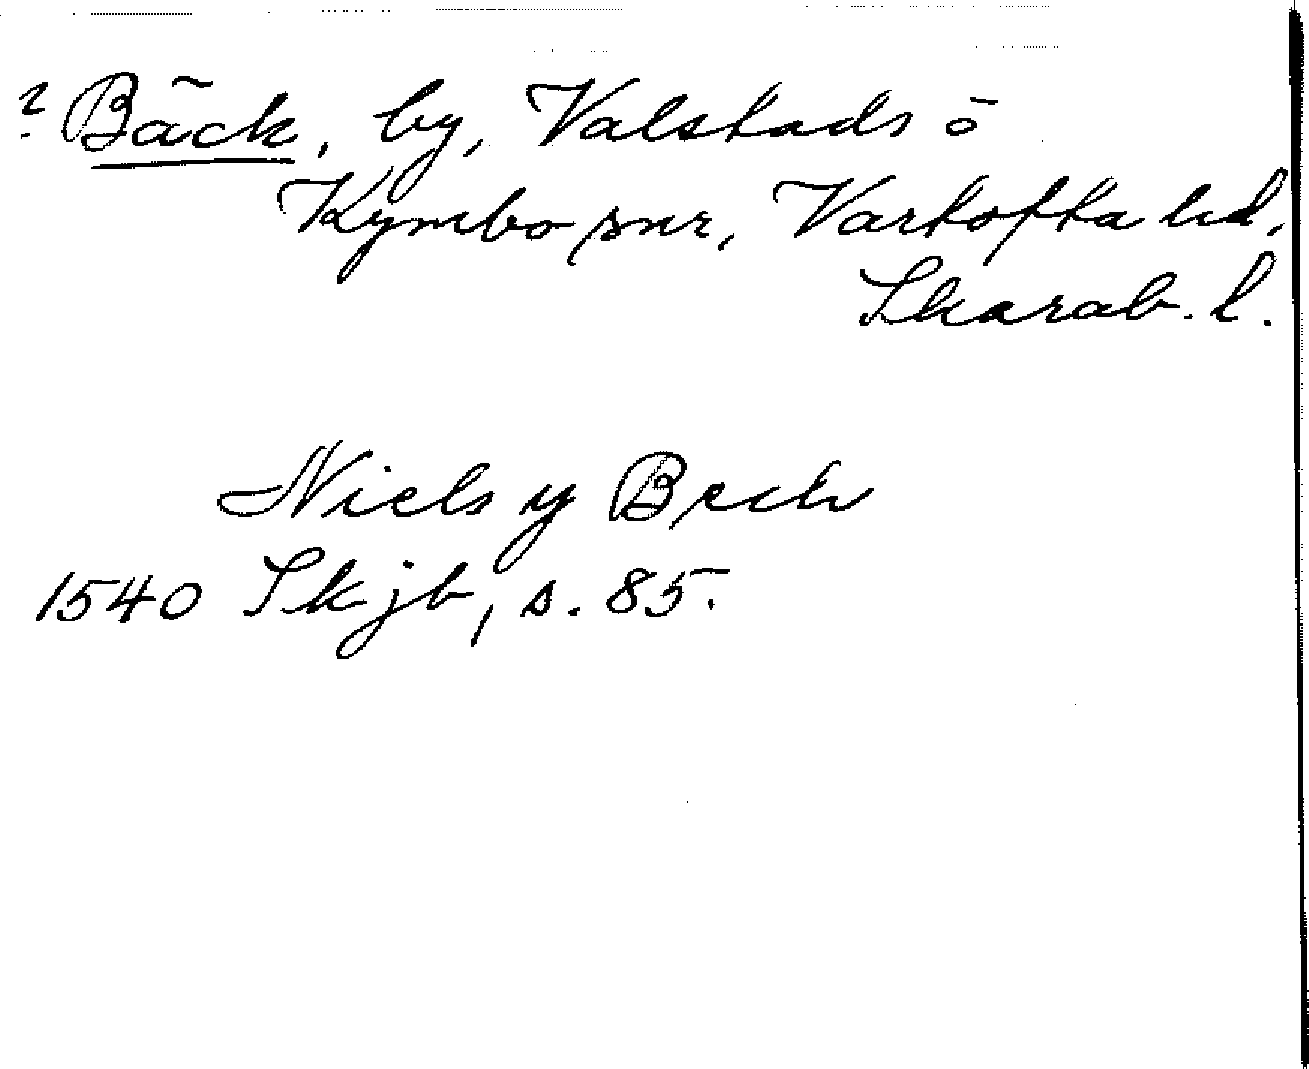 ? Bäck, by, Valstads o
Kymbo snr, Vartofta hd,
Skarab. l.
Niels y Beck
1540 Skjb, s. 85.